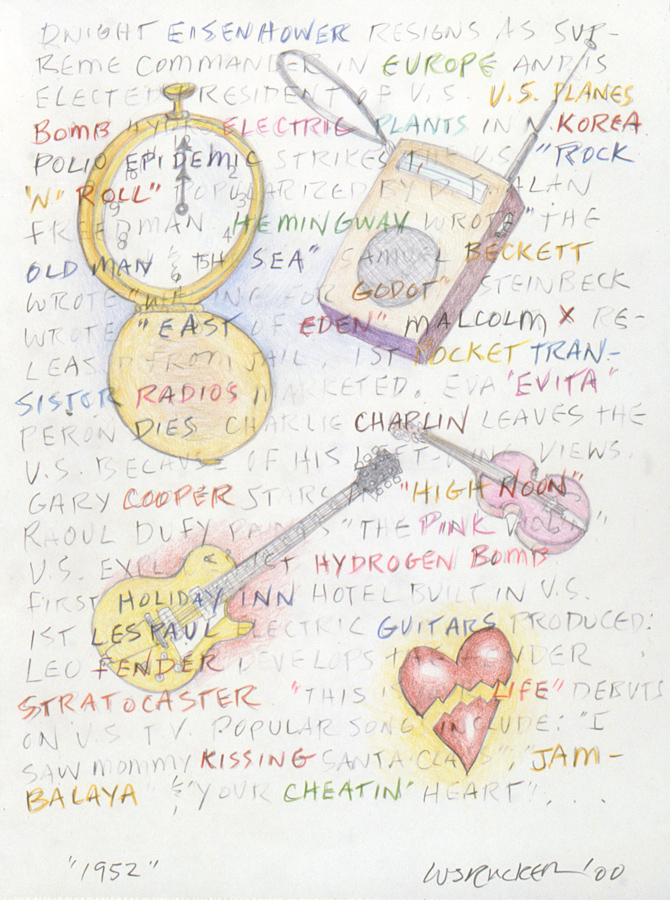 DNIGHT EISENHOWER RESIGNS AS SUP-
REME COMMANDER IN EUROPE AND IS
ELECTED PRESIDENT OF U.S. U.S. PLANES
BOMB HYDRO ELECTRIC PLANTS IN N. KOREA.
POLIO EPIDEMIC STRIKES THE U.S. "ROCK
'N' ROLL" POPULARIZED BY D.J. ALAN
FREEDMAN. HEMINGWAY WROTE "THE
OLD MAN & THE SEA" SAMUEL BECKETT
WROTE "WAITING FOR GODOT" STEINBECK
WROTE "EAST OF EDEN" MALCOLM X RE-
LEASED FROM JAIL. 1ST POCKET TRAN-
SISTOR RADIOS MARKETED. EVA "EVITA"
PERON DIES CHARLIE CHAPLIN LEAVES THE
U.S. BECAUSE OF HIS LEFT-WING VIEWS.
GARY COOPER STARS IN "HIGH NOON"
RAOUL DUFY PAINTS "THE PINK VIOLIN"
U.S. 1ST HYDROGEN BOMB
FIRST HOLIDAY INN HOTEL BUILT IN U.S.
1ST LES PAUL ELECTRIC GUITARS PRODUCED:
LEO FENDER DEVELOPS THE FENDER
STRATOCASTER. "THIS IS LIFE" DEBUTS
ON U.S T.V. POPULAR SONGS INCLUDE: "I
SAW MOMMY KISSING SANTA CLAUS", "JAM-
BALAYA" & "YOUR CHEATIN' HEART"....
12
2
3
4
5
6
8
9
"1952"
WSRUCKER '00